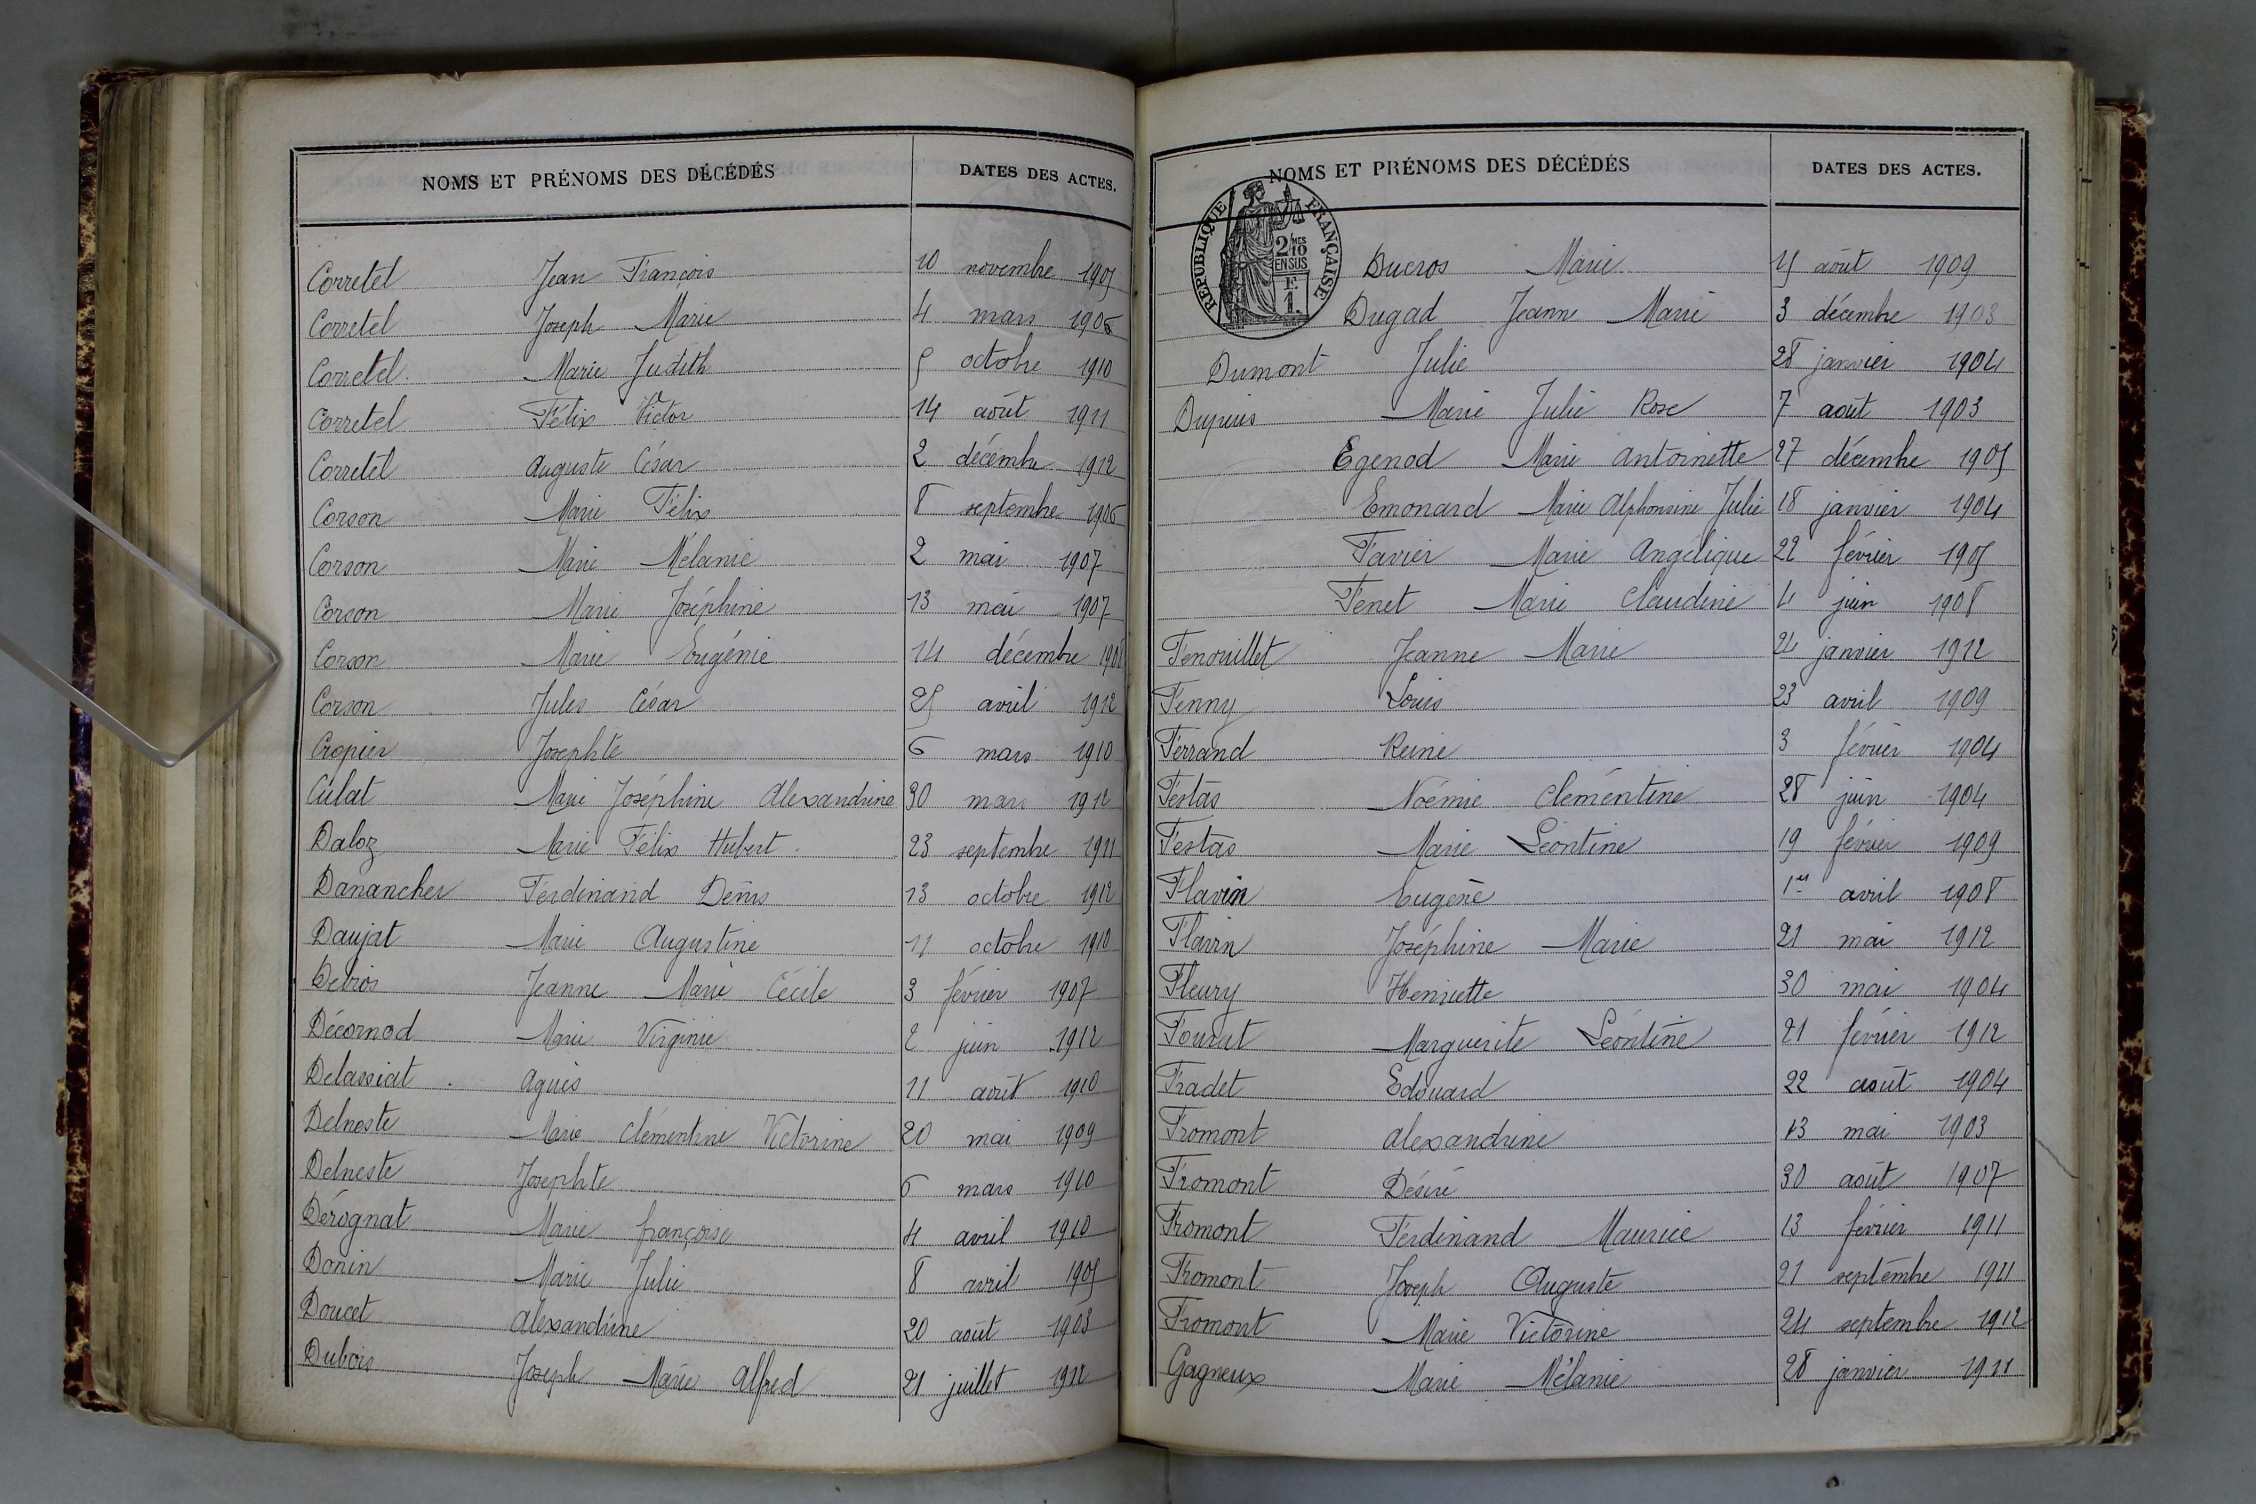 NOMS ET PRÉNOMS DES DÉCÉDÉS DATES DES ACTES.
Corretel Jean François 10 novembre 1905
Corretel Joseph Marie 4 mars 1906
Corretel Marie Judith 5 octobre 1910
Corretel Félix Victor 14 août 1911
Corretel Auguste César 2 décembre 1912
Corson Marie Félix 8 septembre 1906
Corson Marie Mélanie 2 mai 1907
Corson Marie Joséphine 13 mai 1907
Corson Marie Eugénie 14 décembre 1908
Corson Jules César 25 avril 1912
Cropier Josephte 6 mars 1910
Culat Marie Joséphine Alexandrine 30 mars 1912
Daloz Marie Félix Hubert 23 septembre 1911
Danancher Ferdinand Denis 13 octobre 1912
Daujat Marie Augustine 11 octobre 1910
Debios Jeanne Marie Cécile 3 février 1907
Décornod Marie Virginie 2 juin 1912
Delassiat Agnès 11 août 1910
Delneste Marie Clémentine Victorine 20 mai 1909
Delneste Josephte 6 mars 1910
Dérognat Marie françoise 4 avril 1910
Donin Marie Julie 8 avril 1905
Doucet Alexandrine 20 août 1903
Dubois Joseph Marie Alfred 21 juillet 1912
NOMS ET PRÉNOMS DES DÉCÉDÉS DATES DES ACTES.
RÉPUBLIQUE FRANÇAISE
2/10MES
EN SUS
F.
1.
Ducros Marie 15 août 1909
Dugad Jeanne Marie 3 décembre 1903
Dumont Julie 28 janvier 1904
Dupuis Marie Julie Rose 7 août 1903
Egenod Marie Antoinette 27 décembre 1905
Emonard Marie Alphonsine Julie 18 janvier 1904
Favier Marie Angélique 22 février 1905
Fenet Marie Claudine 4 juin 1908
Fenouillet Jeanne Marie 24 janvier 1912
Fenny Louis 23 avril 1909
Ferrand Reine 3 février 1904
Festas Noémie Clémentine 28 juin 1904
Festas Marie Léontine 19 février 1909
Flavin Eugène 1er avril 1908
Flavin Joséphine Marie 21 mai 1912
Fleury Henriette 30 mai 1904
Fournt Marguerite Léontine 21 février 1912
Fradet Edouard 22 août 1904
Fromont Alexandrine 13 mai 1903
Fromont Désiré 30 août 1907
Fromont Ferdinand Maurice 13 février 1911
Fromont Joseph Auguste 21 septembre 1911
Fromont Marie Victorine 24 septembre 1912
Gagneux Marie Mélanie 28 janvier 1911